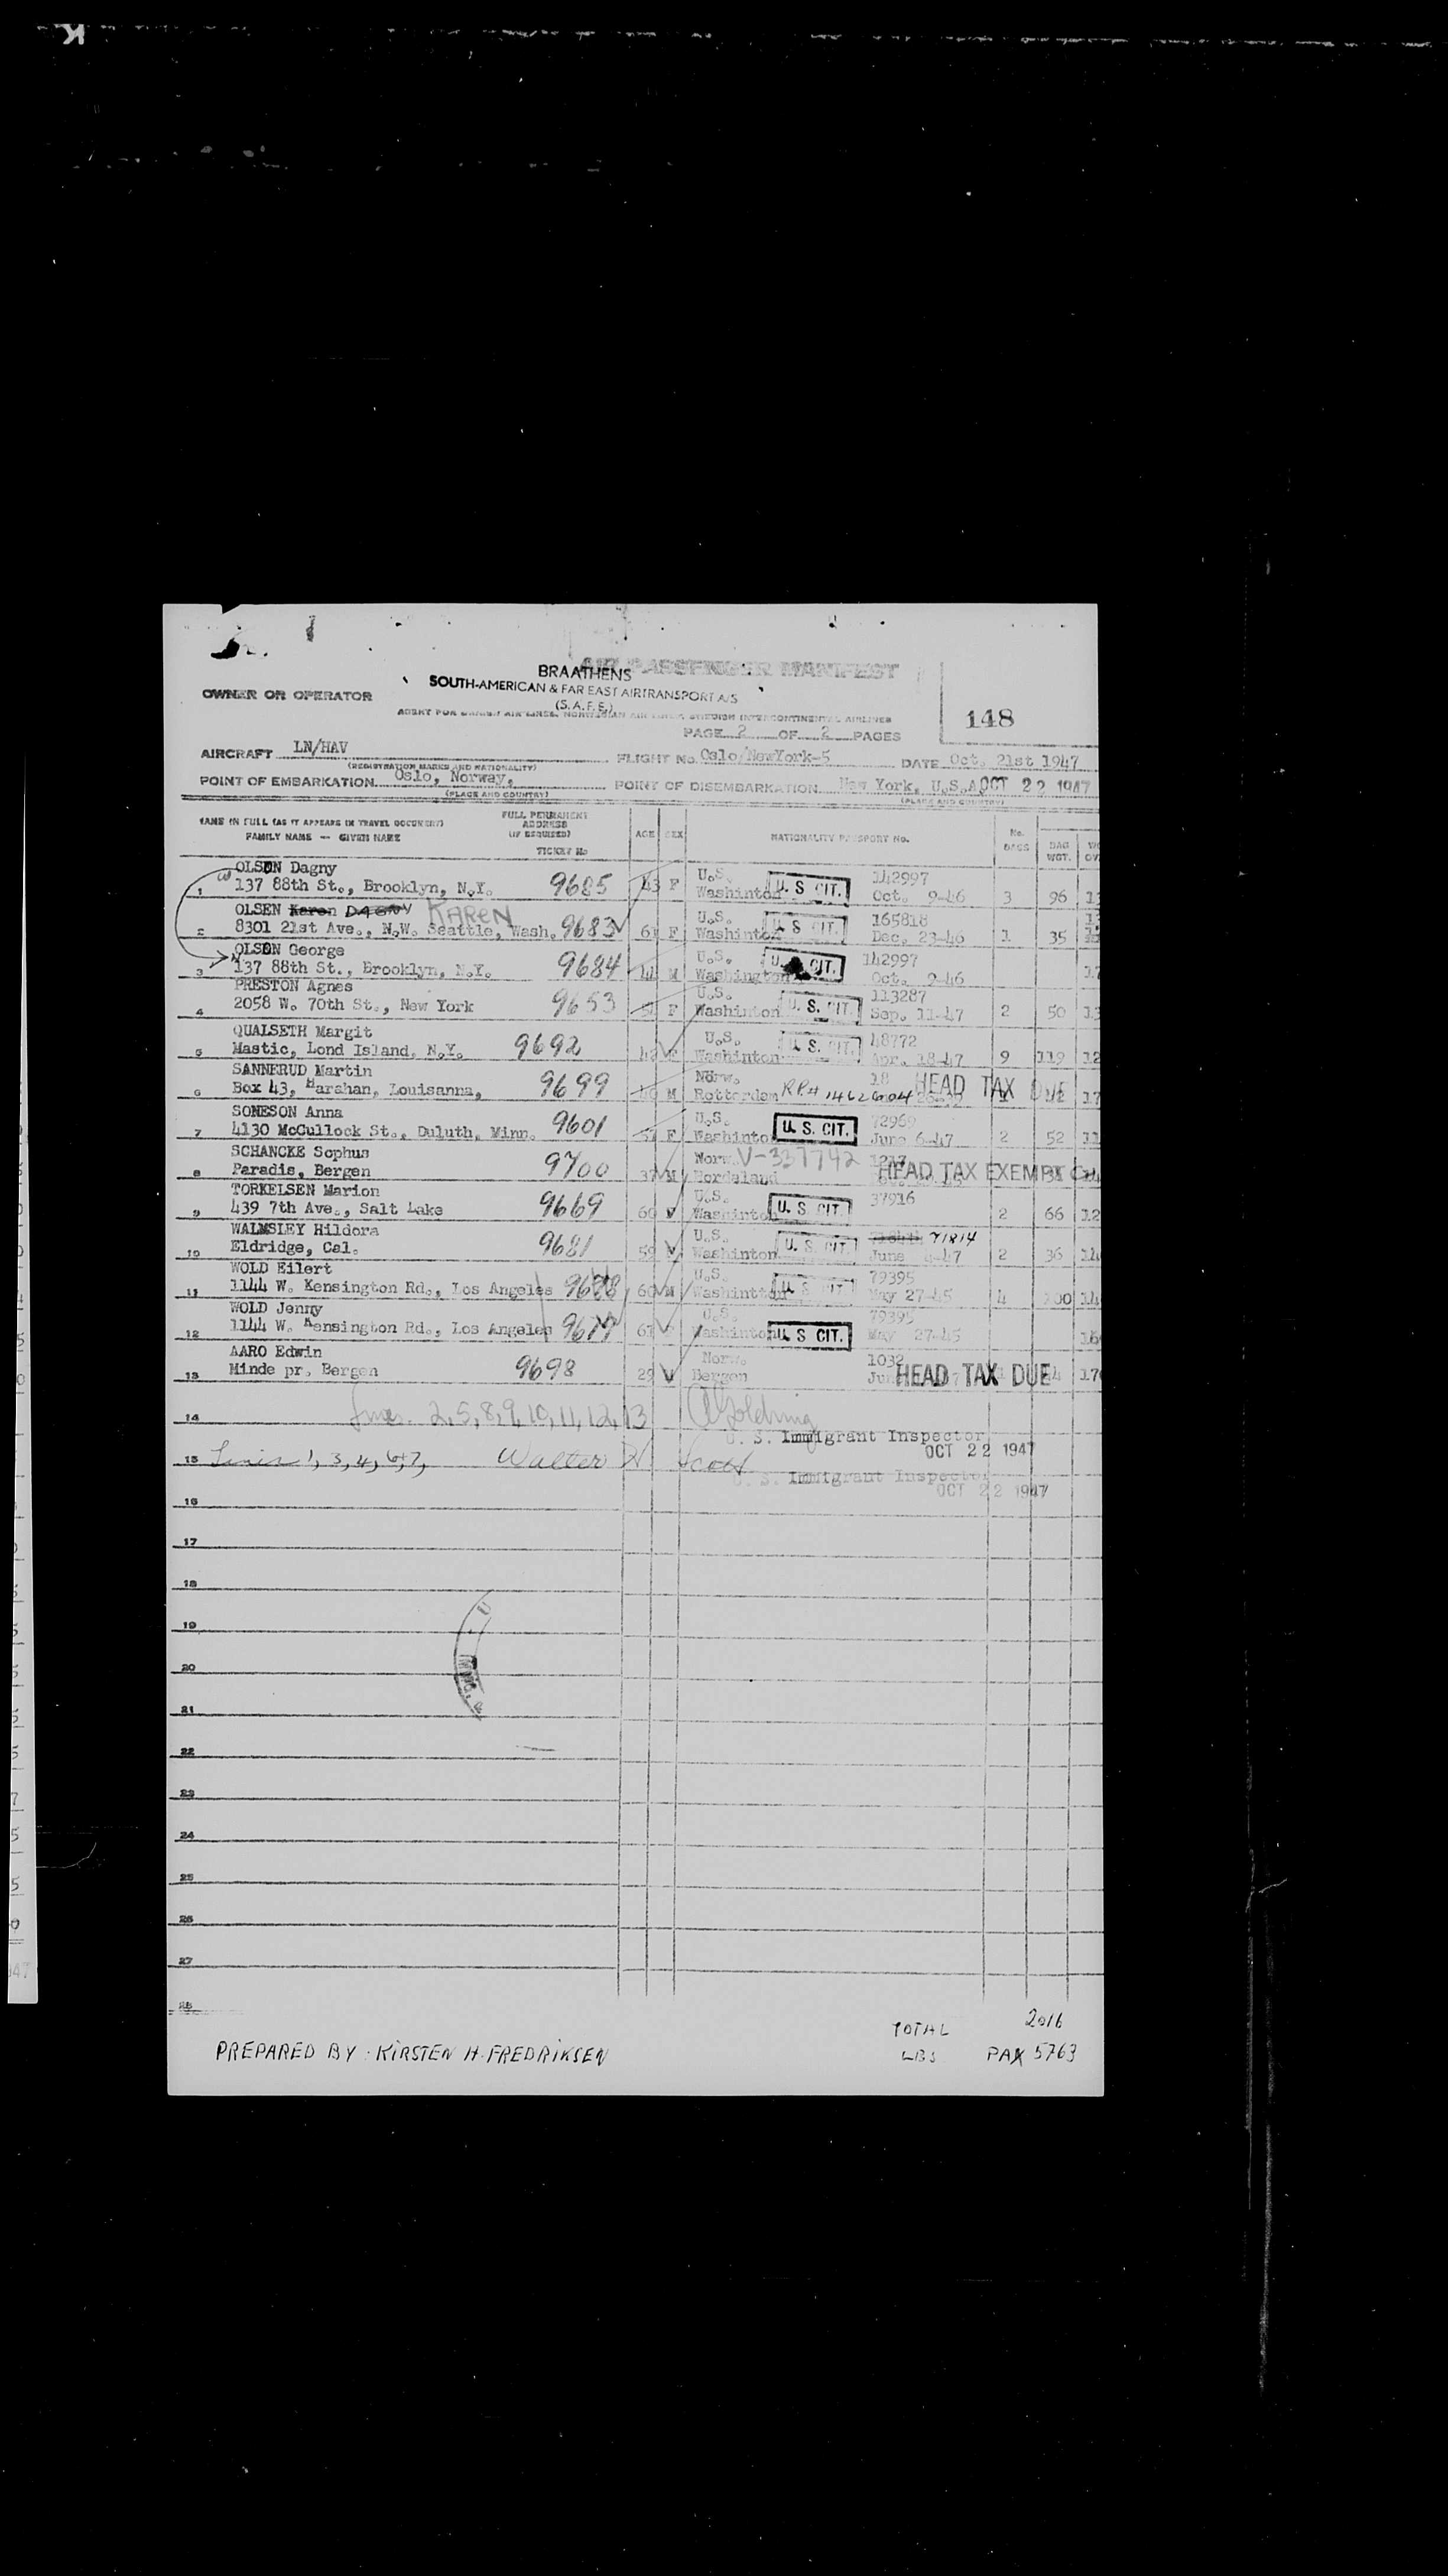 AIR PASSENGER MANIFEST
BRAATHENS
SOUTH-AMERICAN & FAR EAST AIRTRANSPORT A/S
(S.A.F.E.)
OWNER OR OPERATOR
148
PAGE 2 OF 2 PAGES
AIRCRAFT LN/HAV FLIGHT No. Oslo/NewYork-5 DATE Oct. 21st 1947
(REGISTRATION MARKS AND NATIONALITY)
POINT OF EMBARKATION Oslo, Norway, POINT OF DISEMBARKATION New York, U.S.A OCT 22 1947
(PLACE AND COUNTRY) (PLACE AND COUNTRY)
NAME IN FULL (AS IT APPEARS IN TRAVEL DOCUMENT)
FAMILY NAME — GIVEN NAME
FULL PERMANENT
ADDRESS
(IF REQUIRED)
TICKET No
AGE SEX NATIONALITY PASSPORT No. No. BAGS BAG WGT.
OLSEN Dagny U.S. 142997
1 137 88th St., Brooklyn, N.Y. 9685 43 F Washinton U. S CIT. Oct. 9-46 3 96
OLSEN Karen DAGNY KAREN U.S. 165818
2 8301 21st Ave., N.W. Seattle, Wash. 9683 61 F Washinton U S CIT. Dec. 23-46 1 35
OLSEN George U.S. 142997
3 137 88th St., Brooklyn, N.Y. 9684 44 M Washington U. S CIT. Oct. 9-46
PRESTON Agnes U.S. 113287
4 2058 W. 70th St., New York 9653 F Washinton U. S. CIT. Sep. 11-47 2 50
QUALSETH Margit U.S. 48772
5 Mastic, Lond Island, N.Y. 9692 Washinton U. S. CIT. Apr. 18-47 9 119
SANNERUD Martin Norw. 18 HEAD TAX DUE
6 Box 43, Harahan, Louisanna, 9699 M Rotterdam
SONESON Anna U.S. 72969
7 4130 McCullock St., Duluth, Minn. 9601 57 F Washinton U. S. CIT. June 6-47 2 52
SCHANCKE Sophus Norw. V-337742
8 Paradis, Bergen 9700 37 M Hordaland HEAD TAX EXEMPT
TORKELSEN Marion U.S. 37916
9 439 7th Ave., Salt Lake 9669 60 Washinton U. S. CIT. 2 66
WALMSLEY Hildora U.S. 71814
10 Eldridge, Cal. 9681 59 Washinton U. S. CIT. June 2 36
WOLD Eilert U.S. 79395
11 1144 W. Kensington Rd., Los Angeles 60 M Washintton U S CIT. May 27-45 4
WOLD Jenny U.S. 79395
12 1144 W. Kensington Rd., Los Angeles Washinton U. S CIT. May 27-45
AARO Edwin Norw. 1032
13 Minde pr. Bergen 9698 29 Bergen HEAD TAX DUE
14 Lines. 2,5,8,9,10,11,12,13 A Goldring
U. S. Immigrant Inspector
OCT 22 1947
15 Lines 1, 3, 4, 6+7, Walter H Scott
U. S. Immigrant Inspector
OCT 22 1947
16
17
18
19
20
21
22
23
24
25
26
27
28
TOTAL 2016
LBS PAX 5763
PREPARED BY: KIRSTEN H. FREDRIKSEN